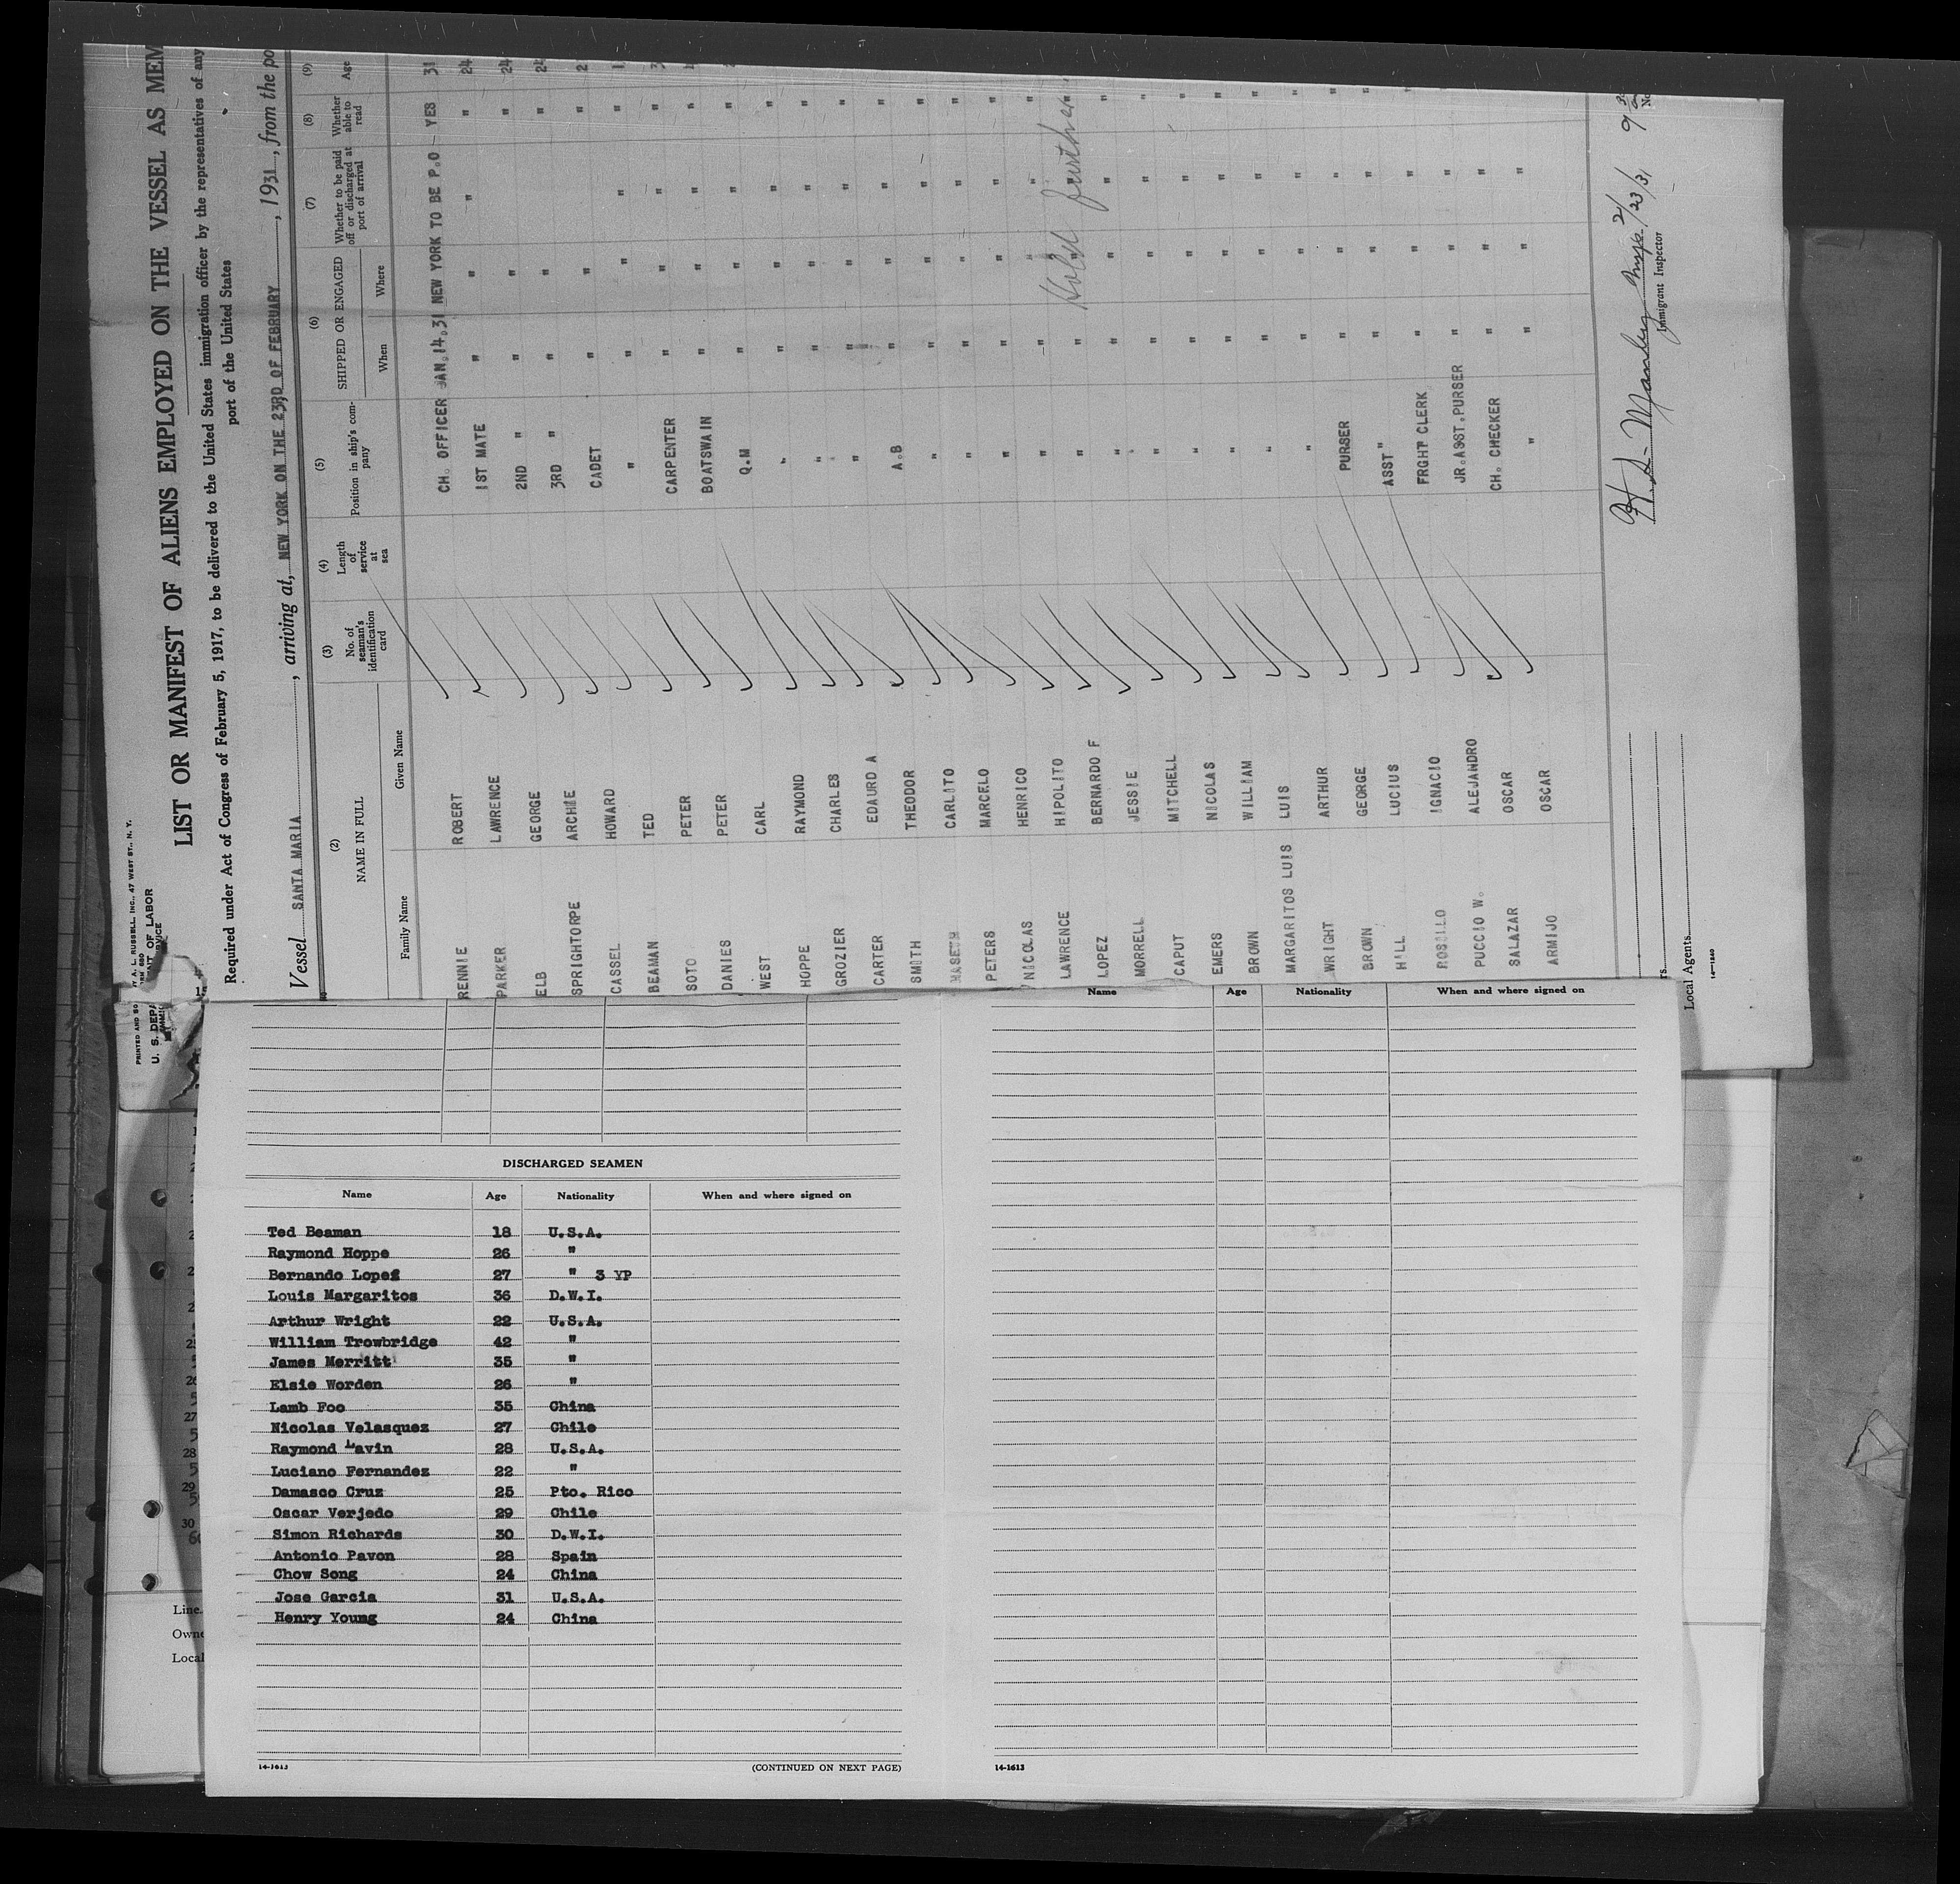 PRINTED AND SO
BY A. L. RUSSELL, INC., 47 WEST ST., N. Y.
U. S. DEPA
OF LABOR
LIST OR MANIFEST OF ALIENS EMPLOYED ON THE VESSEL AS MEM
Required under Act of Congress of February 5, 1917, to be delivered to the United States immigration officer by the representatives of any
port of the United States
Vessel SANTA MARIA, arriving at, NEW YORK ON THE 23RD OF FEBRUARY, 1931, from the po
(2) (3) (4) (5) (6) (7) (8) (9)
NAME IN FULL
Family Name Given Name
No. of seaman's identification card
Length of service at sea
Position in ship's company
SHIPPED OR ENGAGED
When Where
Whether to be paid off or discharged at port of arrival
Whether able to read
Age
RENNIE ROBERT CH. OFFICER JAN.14.31 NEW YORK TO BE P.O YES 31
PARKER LAWRENCE 1ST MATE " " " " 24
ELB GEORGE 2ND " " " " 24
SPRIGHTORPE ARCHIE 3RD " " " "
CASSEL HOWARD CADET " " "
BEAMAN TED " " " " "
SOTO PETER CARPENTER " " " "
DANIES PETER BOATSWAIN " " " "
WEST CARL Q.M " " " "
HOPPE RAYMOND " " " " "
GROZIER CHARLES " " " " "
CARTER EDAURD A " " " " "
SMITH THEODOR A.B " " " "
CARLITO " " " " "
PETERS MARCELO " " " " "
NICOLAS HENRICO " " " " "
LAWRENCE HIPOLITO " " " " "
LOPEZ BERNARDO F " " " " "
MORRELL JESSIE " " " " "
CAPUT MITCHELL " " " " "
EMERS NICOLAS " " " " "
BROWN WILLIAM " " " " "
MARGARITOS LUIS LUIS " " " " "
WRIGHT ARTHUR " " " " "
BROWN GEORGE PURSER " " " "
HILL LUCIUS ASST " " " " "
ROSILLO IGNACIO FRGHT CLERK " " "
PUCCIO W. ALEJANDRO JR.ASST.PURSER " " "
SALAZAR OSCAR CH. CHECKER " " "
ARMIJO OSCAR " " " "
Hold further
2/23/31
Immigrant Inspector
Local Agents
14—1840
Name Age Nationality When and where signed on
DISCHARGED SEAMEN
Name Age Nationality When and where signed on
Ted Beaman 18 U.S.A.
Raymond Hoppe 26 "
Bernando Lopez 27 " 3 YP
Louis Margaritos 36 D.W.I.
Arthur Wright 22 U.S.A.
William Trowbridge 42 "
James Merritt 35 "
Elsie Worden 26 "
Lamb Foo 35 China
Nicolas Velasquez 27 Chile
Raymond Lavin 28 U.S.A.
Luciano Fernandez 22 "
Damasco Cruz 25 Pto. Rico
Oscar Verjedo 29 Chile
Simon Richards 30 D.W.I.
Antonio Pavon 28 Spain
Chow Song 24 China
Jose Garcia 31 U.S.A.
Henry Young 24 China
14-1613 (CONTINUED ON NEXT PAGE)
14-1613
26
27
28
29
30
Line
Owne
Local